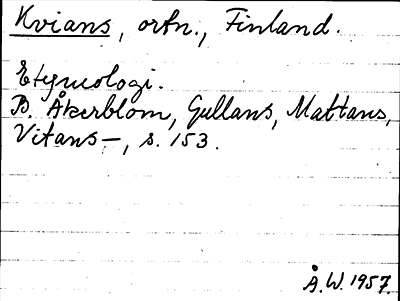 Kvians, ortn., Finland.
Etymologi.
B. Åkerblom, Gullans, Mattans,
Vitans–, s. 153.
Å.W. 1957.